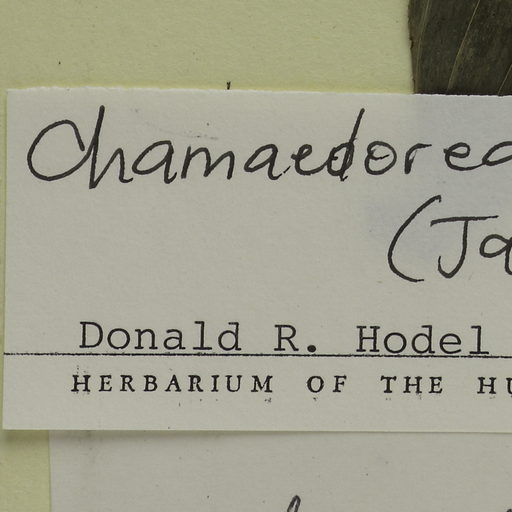 Chamaedorea
(Ja
Donald R. Hodel
HERBARIUM OF THE HU